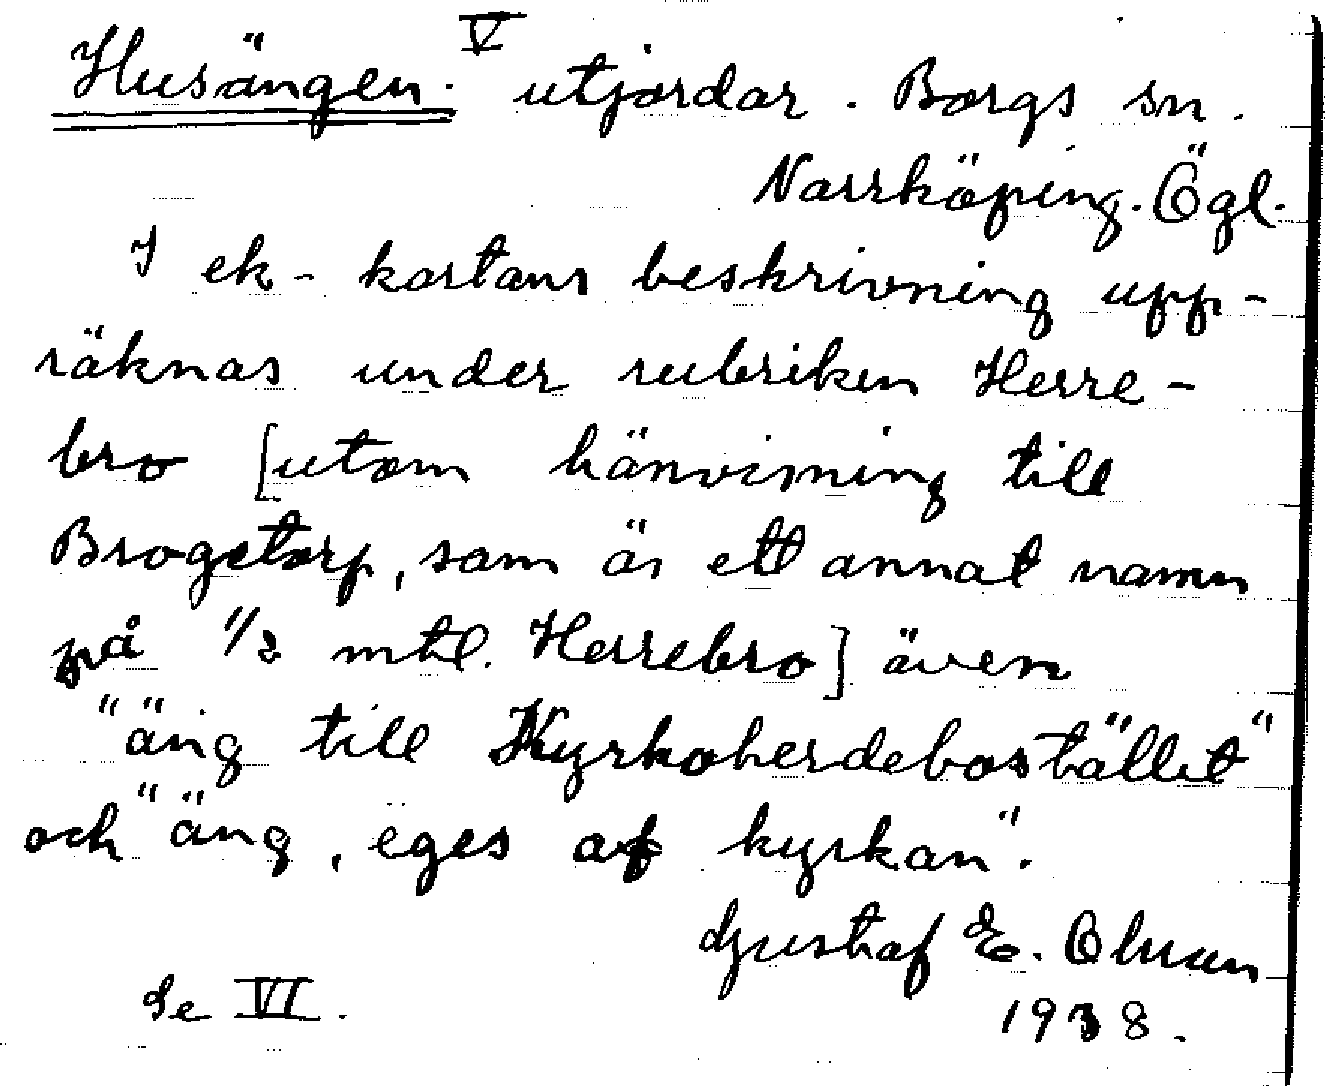 Husängen. V utjordar. Borgs sn.
Norrköping. Ögl.
I ek-kartans beskrivning upp-
räknas under rubriken Herre-
bro [utom hänvisning till
Brogetorp, som är ett annat namn
på 1/2 mtl. Herrebro] även
"äng till Kyrkoherdebostället"
och "äng, eges af kyrkan".
Gustaf E. Olman
Se VI. 1938.